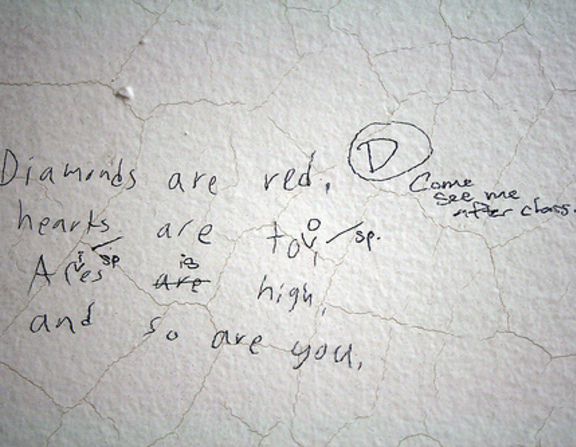 Diamonds are red,
hearts are to, o sp.
Aries sp are is high,
and so are you,
D
Come
see me
after class.